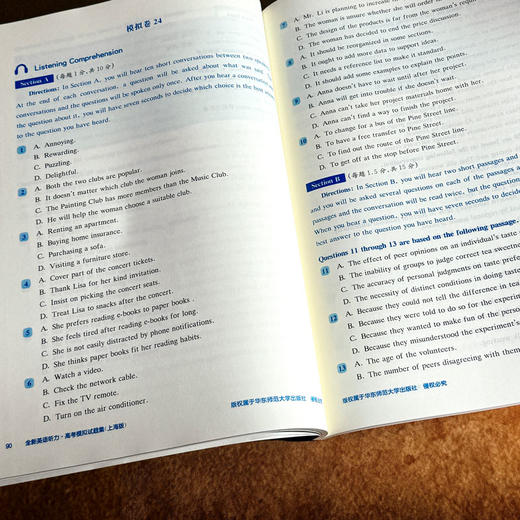 模拟卷 24
Listening Comprehension
Section A (每题1分,共10分)
Directions: In Section A, you will hear ten short conversations between two
At the end of each conversation, a question will be asked about what was
conversations and the questions will be spoken only once. After you hear a conversation
the question about it, you will have seven seconds to decide which choice is the best
to the question you have heard.
1 A. Annoying.
B. Rewarding.
C. Puzzling.
D. Delightful.
2 A. Both the two clubs are popular.
B. It doesn't matter which club the woman joins.
C. The Painting Club has more members than the Music Club.
D. He will help the woman choose a suitable club.
3 A. Renting an apartment.
B. Buying home insurance.
C. Purchasing a sofa.
D. Visiting a furniture store.
4 A. Cover part of the concert tickets.
B. Thank Lisa for her kind invitation.
C. Insist on picking the concert seats.
D. Treat Lisa to snacks after the concert.
5 A. She prefers reading e-books to paper books.
B. She feels tired after reading e-books for long.
C. She is not easily distracted by phone notifications.
D. She thinks paper books fit her reading habits.
6 A. Watch a video.
B. Check the network cable.
C. Fix the TV remote.
D. Turn on the air conditioner.
版权属于华东师范大学出版社
90 全新英语听力·高考模拟试题集(上海版)
7 A. Mr. Li is planning to increase
B. The woman is unsure whether she will order
C. The design of the products is far from the woman's
D. The woman has decided to end the price discussion.
8 A. It should be reorganized in some sections.
B. It ought to add more data to support ideas.
C. It needs a reference list to make it standard.
D. It should add some examples to explain the points.
9 A. Anna doesn't have to wait until after her project.
B. Anna will get into trouble if she doesn't wait.
C. Anna can't take her project materials home with her.
D. Anna can't find a way to finish the project.
10 A. To change for a bus of the Pine Street line.
B. To have a free transfer to Pine Street.
C. To find out the route of the Pine Street line.
D. To get off at the stop before Pine Street.
Section B (每题1.5分,共15分)
Directions: In Section B, you will hear two short passages and
and you will be asked several questions on each of the passages
passages and the conversation will be read twice, but the question
When you hear a question, you will have seven seconds to decide
best answer to the question you have heard.
Questions 11 through 13 are based on the following passage.
11 A. The effect of peer opinions on an individual's taste
B. The inability of groups to judge correct tea sweetness
C. The accuracy of personal judgments on taste
D. The necessity of distinct conditions in doing taste
12 A. Because they could not tell the difference in tea
B. Because they were told to do so for the
C. Because they wanted to make fun of the
D. Because they misunderstood the experiment's
13 A. The age of the volunteers.
B. The number of peers disagreeing with them
版权属于华东师范大学出版社 侵权必究